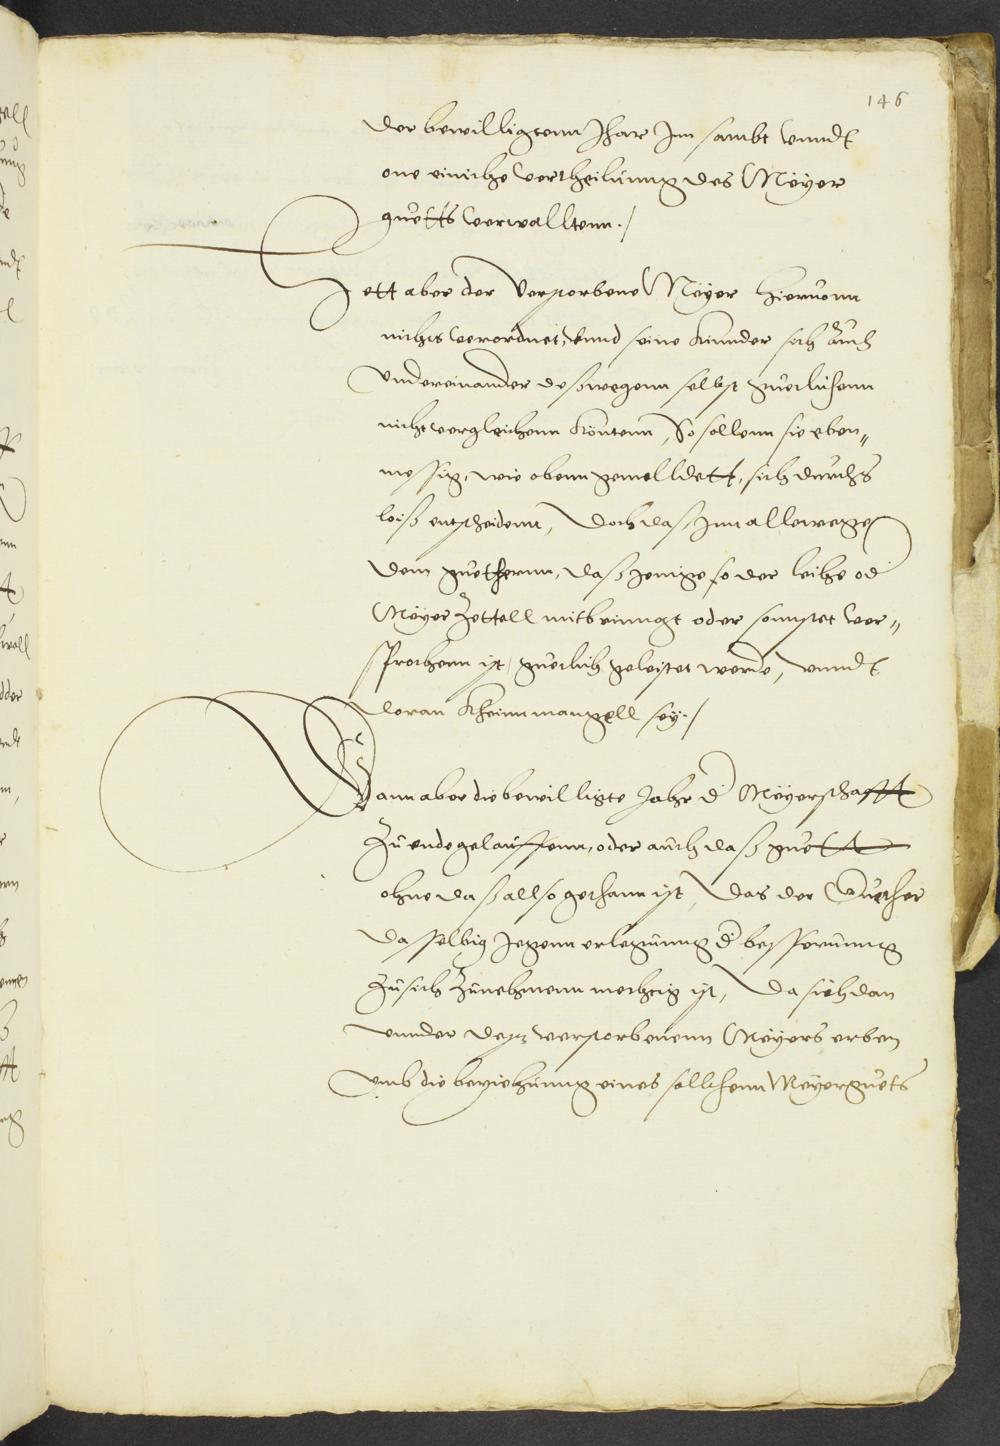 146
der bewilligtenn Jhare Inn sambt vnndt
one einiche vertheilunng des Meyer
guetts verwalltenn./
Hett aber der verstorbene Meyer hieruonn
nichts verordnet, vnnd seine Kinnder sich auch
vndereinander deßwegenn selbst guetlichenn
nicht vergleichenn köntenn, So sollenn sie eben„
messig, wie obenn gemelldett, sich durchs
loiß entscheidenn, doch daß Inn allewege
dem guethernn, daß jenige so der leihe od
Meyer Zettell mitbrinngt oder sonnstet ver„
sprochenn ist, guetlich geleistet werde, vnndt
doran kheinn manngell sey./
Wann aber die bewilligte Jahr d Meyerschafft
Zu ende gelauffenn, oder auch daß guett
ohne daß allso gethann ist, das der Guether
dasselbig Jegenn erlegunng d besserunng
Zu sich Zunehmenn mechtig ist, da sich dan
vnnder deß verstorbenenn Meyers erben
vmb die beziehunng eines sollchenn Meyerguets